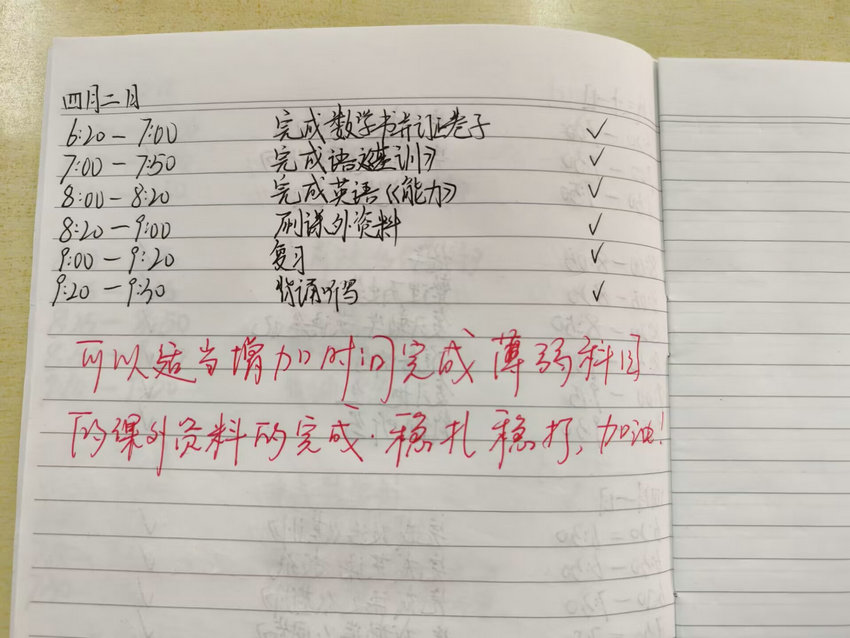 四月二日
6:20-7:00 完成数学书并订正卷子 ✓
7:00-7:50 完成语文基训》 ✓
8:00-8:20 完成英语《能力》 ✓
8:20-9:00 刷课外资料 ✓
9:00-9:20 复习 ✓
9:20-9:30 背诵听写 ✓
可以适当增加时间完成薄弱科目
的课外资料的完成.稳扎稳打,加油!